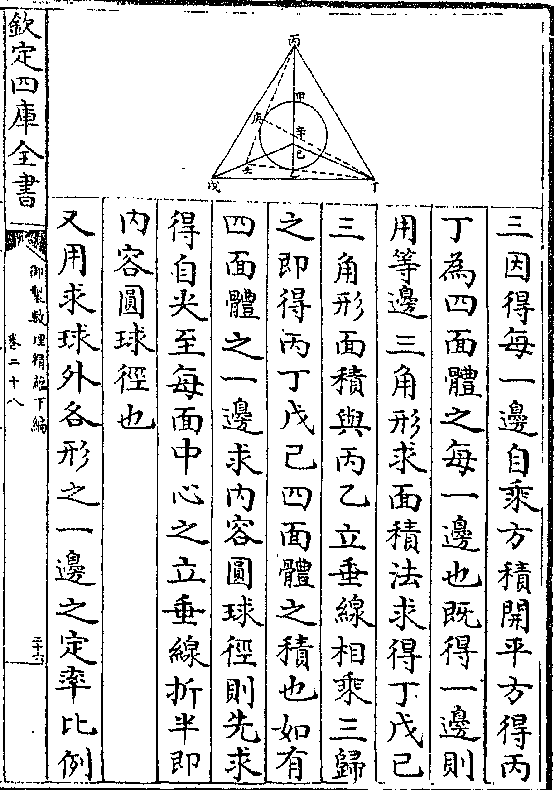 三因得每一邊自乘方積開平方得丙
丁為四面體之每一邊也既得一邊則
用等邊三角形求面積法求得丁戊己
三角形面積與丙乙立垂線相乘三歸
之即得丙丁戊己四面體之積也如有
四面體之一邊求內容圓球徑則先求
得自尖至每面中心之立垂線折半即
內容圓球徑也
又用求球外各形之一邊之定率比例
欽定四庫全書
御製數理精蘊下編
卷二十八
二十六
丙
甲
庚
辛
己
壬
乙
戊
丁